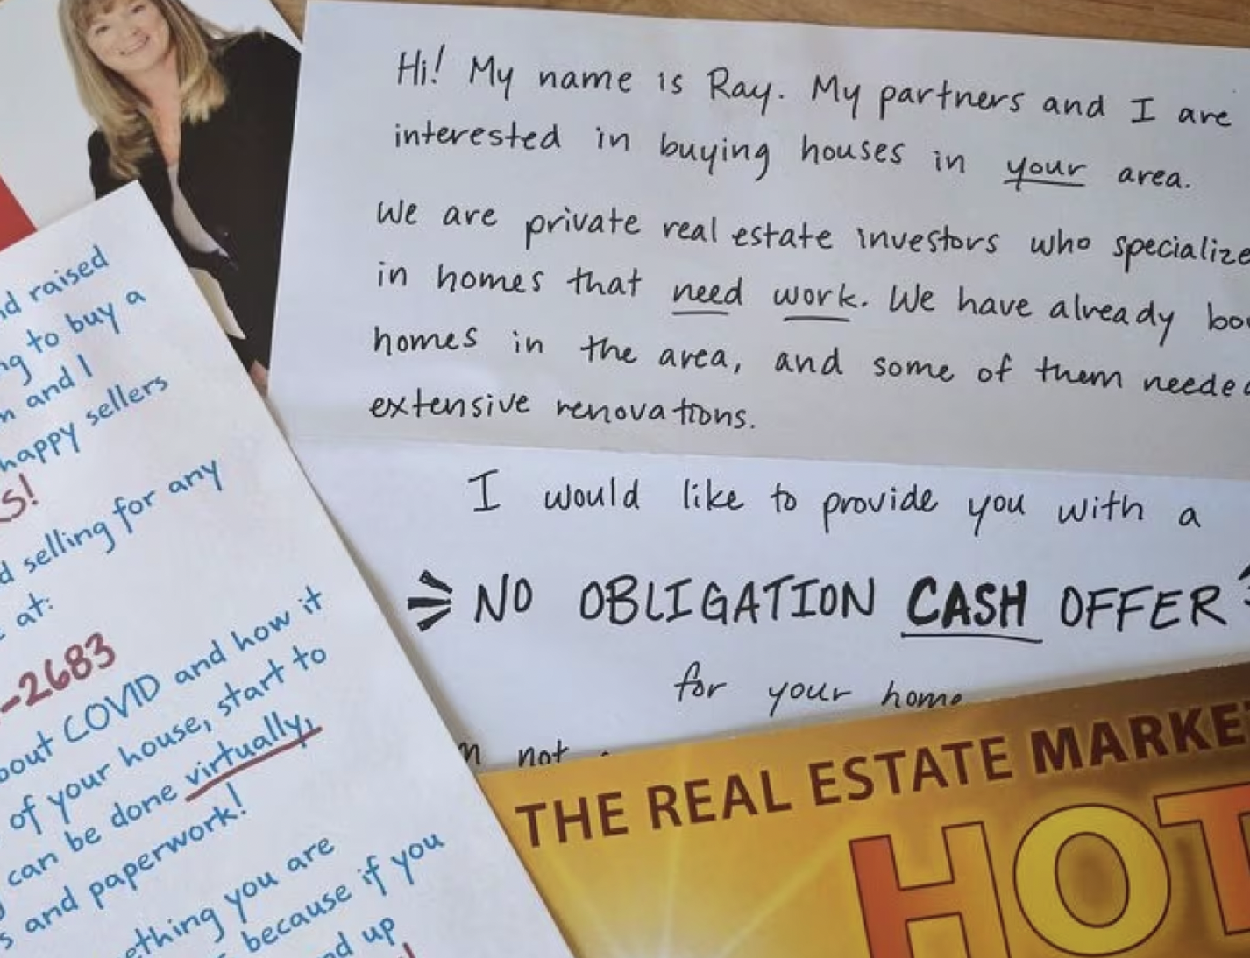 Hi! My name is Ray. My partners and I are
interested in buying houses in your area.
We are private real estate investors who specialize
in homes that need work. We have already
homes in the area, and some of them
extensive renovations.
I would like to provide you with a
NO OBLIGATION CASH OFFER
for your home
not
raised
to buy a
and I
happy sellers
selling for any
at:
-2683
COVID and how it
of your house, start to
can be done virtually,
and paperwork!
you are
because if you
up
THE REAL ESTATE
HOT